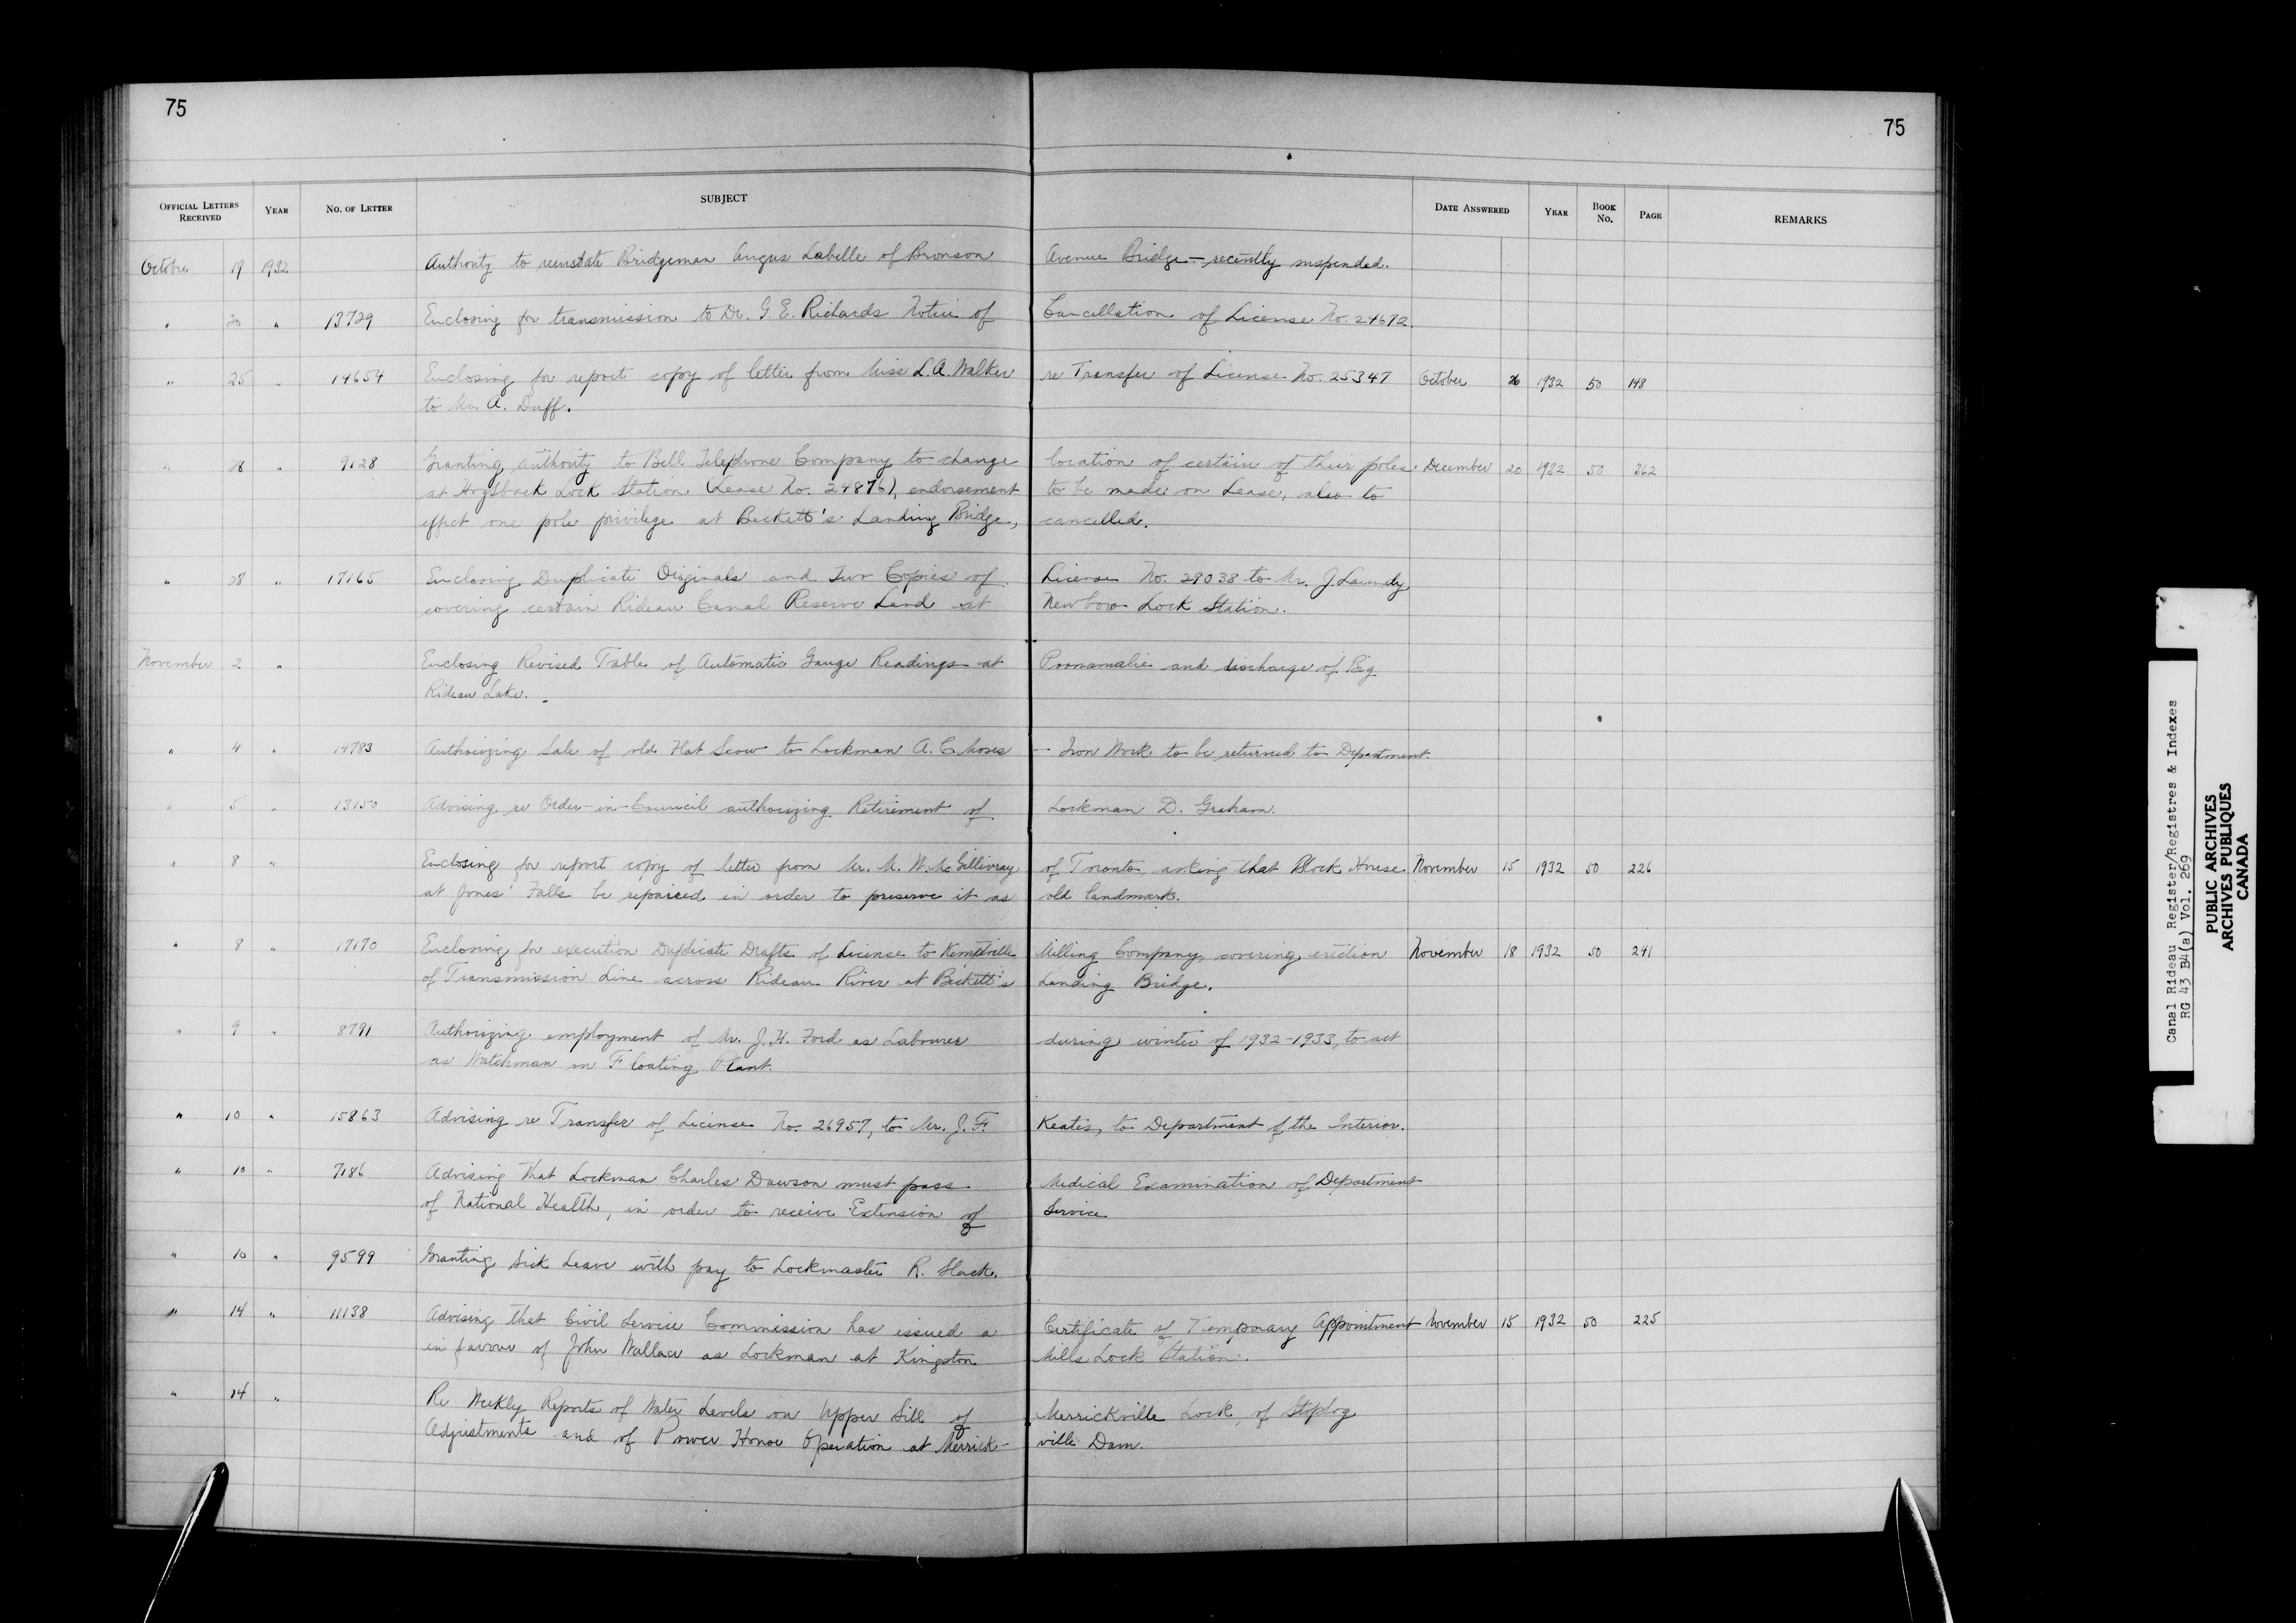 75
75
OFFICIAL LETTERS RECEIVED YEAR NO. OF LETTER SUBJECT DATE ANSWERED YEAR BOOK No. PAGE REMARKS
October 19 1932 Authority to reinstate Bridgeman Angus Labelle of Bronson Avenue Bridge - recently suspended.
" 20 " 13729 Enclosing for transmission to Dr. G. E. Richards Notice of Cancellation of License No. 24692.
" 25 " 14654 Enclosing for report copy of letter from Miss L. A. Walker re Transfer of License No. 25347 October 26 1932 50 148
to Mr. A. Duff.
" 28 " 9128 Granting authority to Bell Telephone Company to change location of certain of their poles December 20 1932 50 362
at Hogsback Lock Station (Lease No. 24876), endorsement to be made on Lease, also to
effect one pole privilege at Beckett's Landing Bridge, cancelled.
" 28 " 17165 Enclosing Duplicate Originals and Two Copies of License No. 29038 to Mr. J. Laundy
covering certain Rideau Canal Reserve Land at Newboro Lock Station.
November 2 " Enclosing Revised Table of Automatic Gauge Readings at Poonamalie and discharge of Big
Rideau Lake.
" 4 " 14783 Authorizing Sale of old Flat Scow to Lockman A. C. Moses - Iron Work to be returned to Department.
" 5 " 13150 Advising re Order-in-Council authorizing Retirement of Lockman D. Graham.
" 8 " Enclosing for report copy of letter from Mr. M. W. McGillivray of Toronto asking that Block House November 15 1932 50 226
at Jones' Falls be repaired in order to preserve it as old landmark.
" 8 " 17170 Enclosing for execution Duplicate Drafts of License to Kemptville Milling Company, covering erection November 18 1932 50 241
of Transmission Line across Rideau River at Beckett's Landing Bridge.
" 9 " 8791 Authorizing employment of Mr. J. H. Ford as Labourer during winter of 1932-1933, to act
as Watchman on Floating Plant.
" 10 " 15863 Advising re Transfer of License No. 26957, to Mr. J. F. Keatis, to Department of the Interior.
" 10 " 7186 Advising that Lockman Charles Dawson must pass Medical Examination of Department
of National Health, in order to receive Extension of Service
" 10 " 9599 Granting Sick Leave with pay to Lockmaster R. Slack.
" 14 " 11138 Advising that Civil Service Commission has issued a Certificate of Temporary Appointment November 15 1932 50 225
in favour of John Wallace as Lockman at Kingston Mills Lock Station.
" 14 " Re Weekly Reports of Water Levels on Upper Sill of Merrickville Lock, of Stoplog
Adjustments and of Power House Operation at Merrick- ville Dam.
Canal Rideau Register/Registres & Indexes
RG 43 B4(a) Vol. 269
PUBLIC ARCHIVES
ARCHIVES PUBLIQUES
CANADA